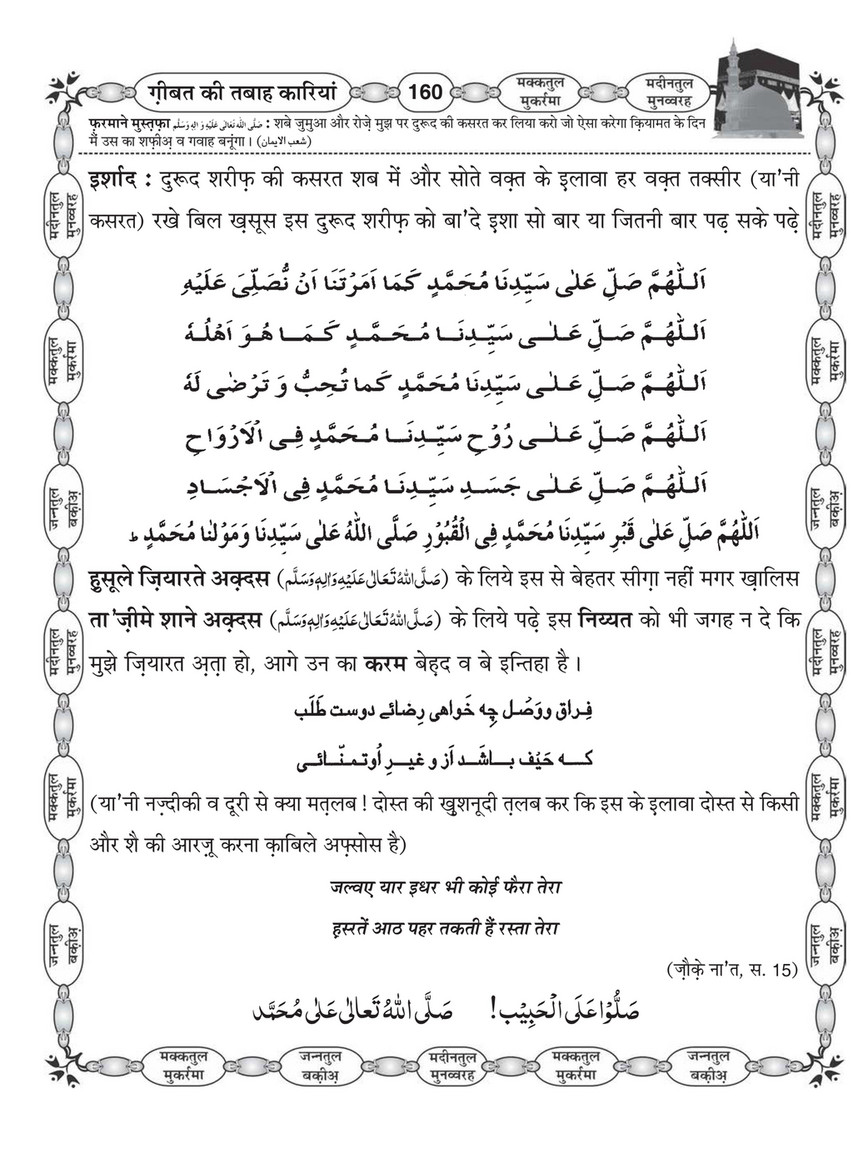 ग़ीबत की तबाह कारियां
160
मक्कतुल
मुकर्रमा
मदीनतुल
मुनव्वरह
फ़रमाने मुस्त़फ़ा صَلَّى اللهُ تَعَالٰى عَلَيْهِ وَاٰلِهٖ وَسَلَّم : शबे जुमुआ और रोज़े मुझ पर दुरूद की कसरत कर लिया करो जो ऐसा करेगा क़ियामत के दिन
मैं उस का शफ़ीअ़ व गवाह बनूंगा। (شعب الایمان)
इर्शाद : दुरूद शरीफ़ की कसरत शब में और सोते वक़्त के इलावा हर वक़्त तक्सीर (या'नी
कसरत) रखे बिल ख़सूस इस दुरूद शरीफ़ को बा'दे इशा सो बार या जितनी बार पढ़ सके पढ़े
اَللّٰهُمَّ صَلِّ عَلٰى سَيِّدِنَا مُحَمَّدٍ كَمَا اَمَرْتَنَا اَنْ نُّصَلِّىَ عَلَيْهِ
اَللّٰهُمَّ صَلِّ عَلٰى سَيِّدِنَا مُحَمَّدٍ كَمَا هُوَ اَهْلُهٗ
اَللّٰهُمَّ صَلِّ عَلٰى سَيِّدِنَا مُحَمَّدٍ كَمَا تُحِبُّ وَ تَرْضٰى لَهٗ
اَللّٰهُمَّ صَلِّ عَلٰى رُوْحِ سَيِّدِنَا مُحَمَّدٍ فِى الْاَرْوَاحِ
اَللّٰهُمَّ صَلِّ عَلٰى جَسَدِ سَيِّدِنَا مُحَمَّدٍ فِى الْاَجْسَادِ
اَللّٰهُمَّ صَلِّ عَلٰى قَبْرِ سَيِّدِنَا مُحَمَّدٍ فِى الْقُبُوْرِ صَلَّى اللهُ عَلٰى سَيِّدِنَا وَمَوْلٰنَا مُحَمَّدٍ ط
हुसूले ज़ियारते अक़्दस (صَلَّى اللهُ تَعَالٰى عَلَيْهِ وَاٰلِهٖ وَسَلَّم) के लिये इस से बेहतर सीग़ा नहीं मगर ख़ालिस
ता'ज़ीमे शाने अक़्दस (صَلَّى اللهُ تَعَالٰى عَلَيْهِ وَاٰلِهٖ وَسَلَّم) के लिये पढ़े इस निय्यत को भी जगह न दे कि
मुझे ज़ियारत अ़त़ा हो, आगे उन का करम बेह़द व बे इन्तिहा है।
فِراق ووَصْل چِه خَواهى رِضائے دوست طَلَب
كه حَيْف باشَد اَز و غيرِ اُو تمنّائى
(या'नी नज़्दीकी व दूरी से क्या मत़लब ! दोस्त की ख़ुशनूदी त़लब कर कि इस के इलावा दोस्त से किसी
और शै की आरज़ू करना क़ाबिले अफ़्सोस है)
जल्वए यार इधर भी कोई फैरा तेरा
ह़स्रतें आठ पहर तकती हैं रस्ता तेरा
(ज़ौक़े ना'त, स. 15)
صَلُّوْا عَلَى الْحَبِيْب! صَلَّى اللهُ تَعَالٰى عَلٰى مُحَمَّد
मदीनतुल
मुनव्वरह
मक्कतुल
मुकर्रमा
जन्नतुल
बक़ीअ़
मदीनतुल
मुनव्वरह
मक्कतुल
मुकर्रमा
जन्नतुल
बक़ीअ़
मदीनतुल
मुनव्वरह
मक्कतुल
मुकर्रमा
जन्नतुल
बक़ीअ़
मदीनतुल
मुनव्वरह
मक्कतुल
मुकर्रमा
जन्नतुल
बक़ीअ़
मक्कतुल
मुकर्रमा
जन्नतुल
बक़ीअ़
मदीनतुल
मुनव्वरह
मक्कतुल
मुकर्रमा
जन्नतुल
बक़ीअ़